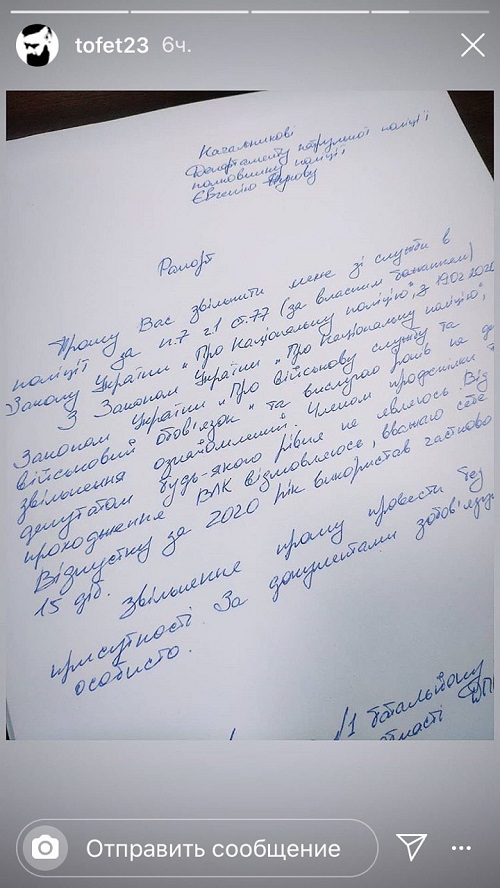 tofet23 6ч.
Начальникові
Департаменту патрульної поліції
полковнику поліції
Євгенію
Рапорт
Прошу Вас звільнити мене зі служби в
поліції за п.7 ч.1 ст.77 (за власним бажанням)
Закону України "Про Національну поліцію", з 19.02.2020
З Законом України "Про Національну поліцію",
Законом України "Про військову службу та
військовий обов'язок" та вислугою років на
звільнення ознайомлений. Членом профспілки
депутатом будь-якого рівня не являюсь. Від
проходження ВЛК відмовляюсь, вважаю себе
Відпустку за 2020 рік використав частково
15 діб.
Звільнення прошу провести без
присутності. За документами зобов'язу
особисто.
1 батальйону
ДПП
Отправить сообщение